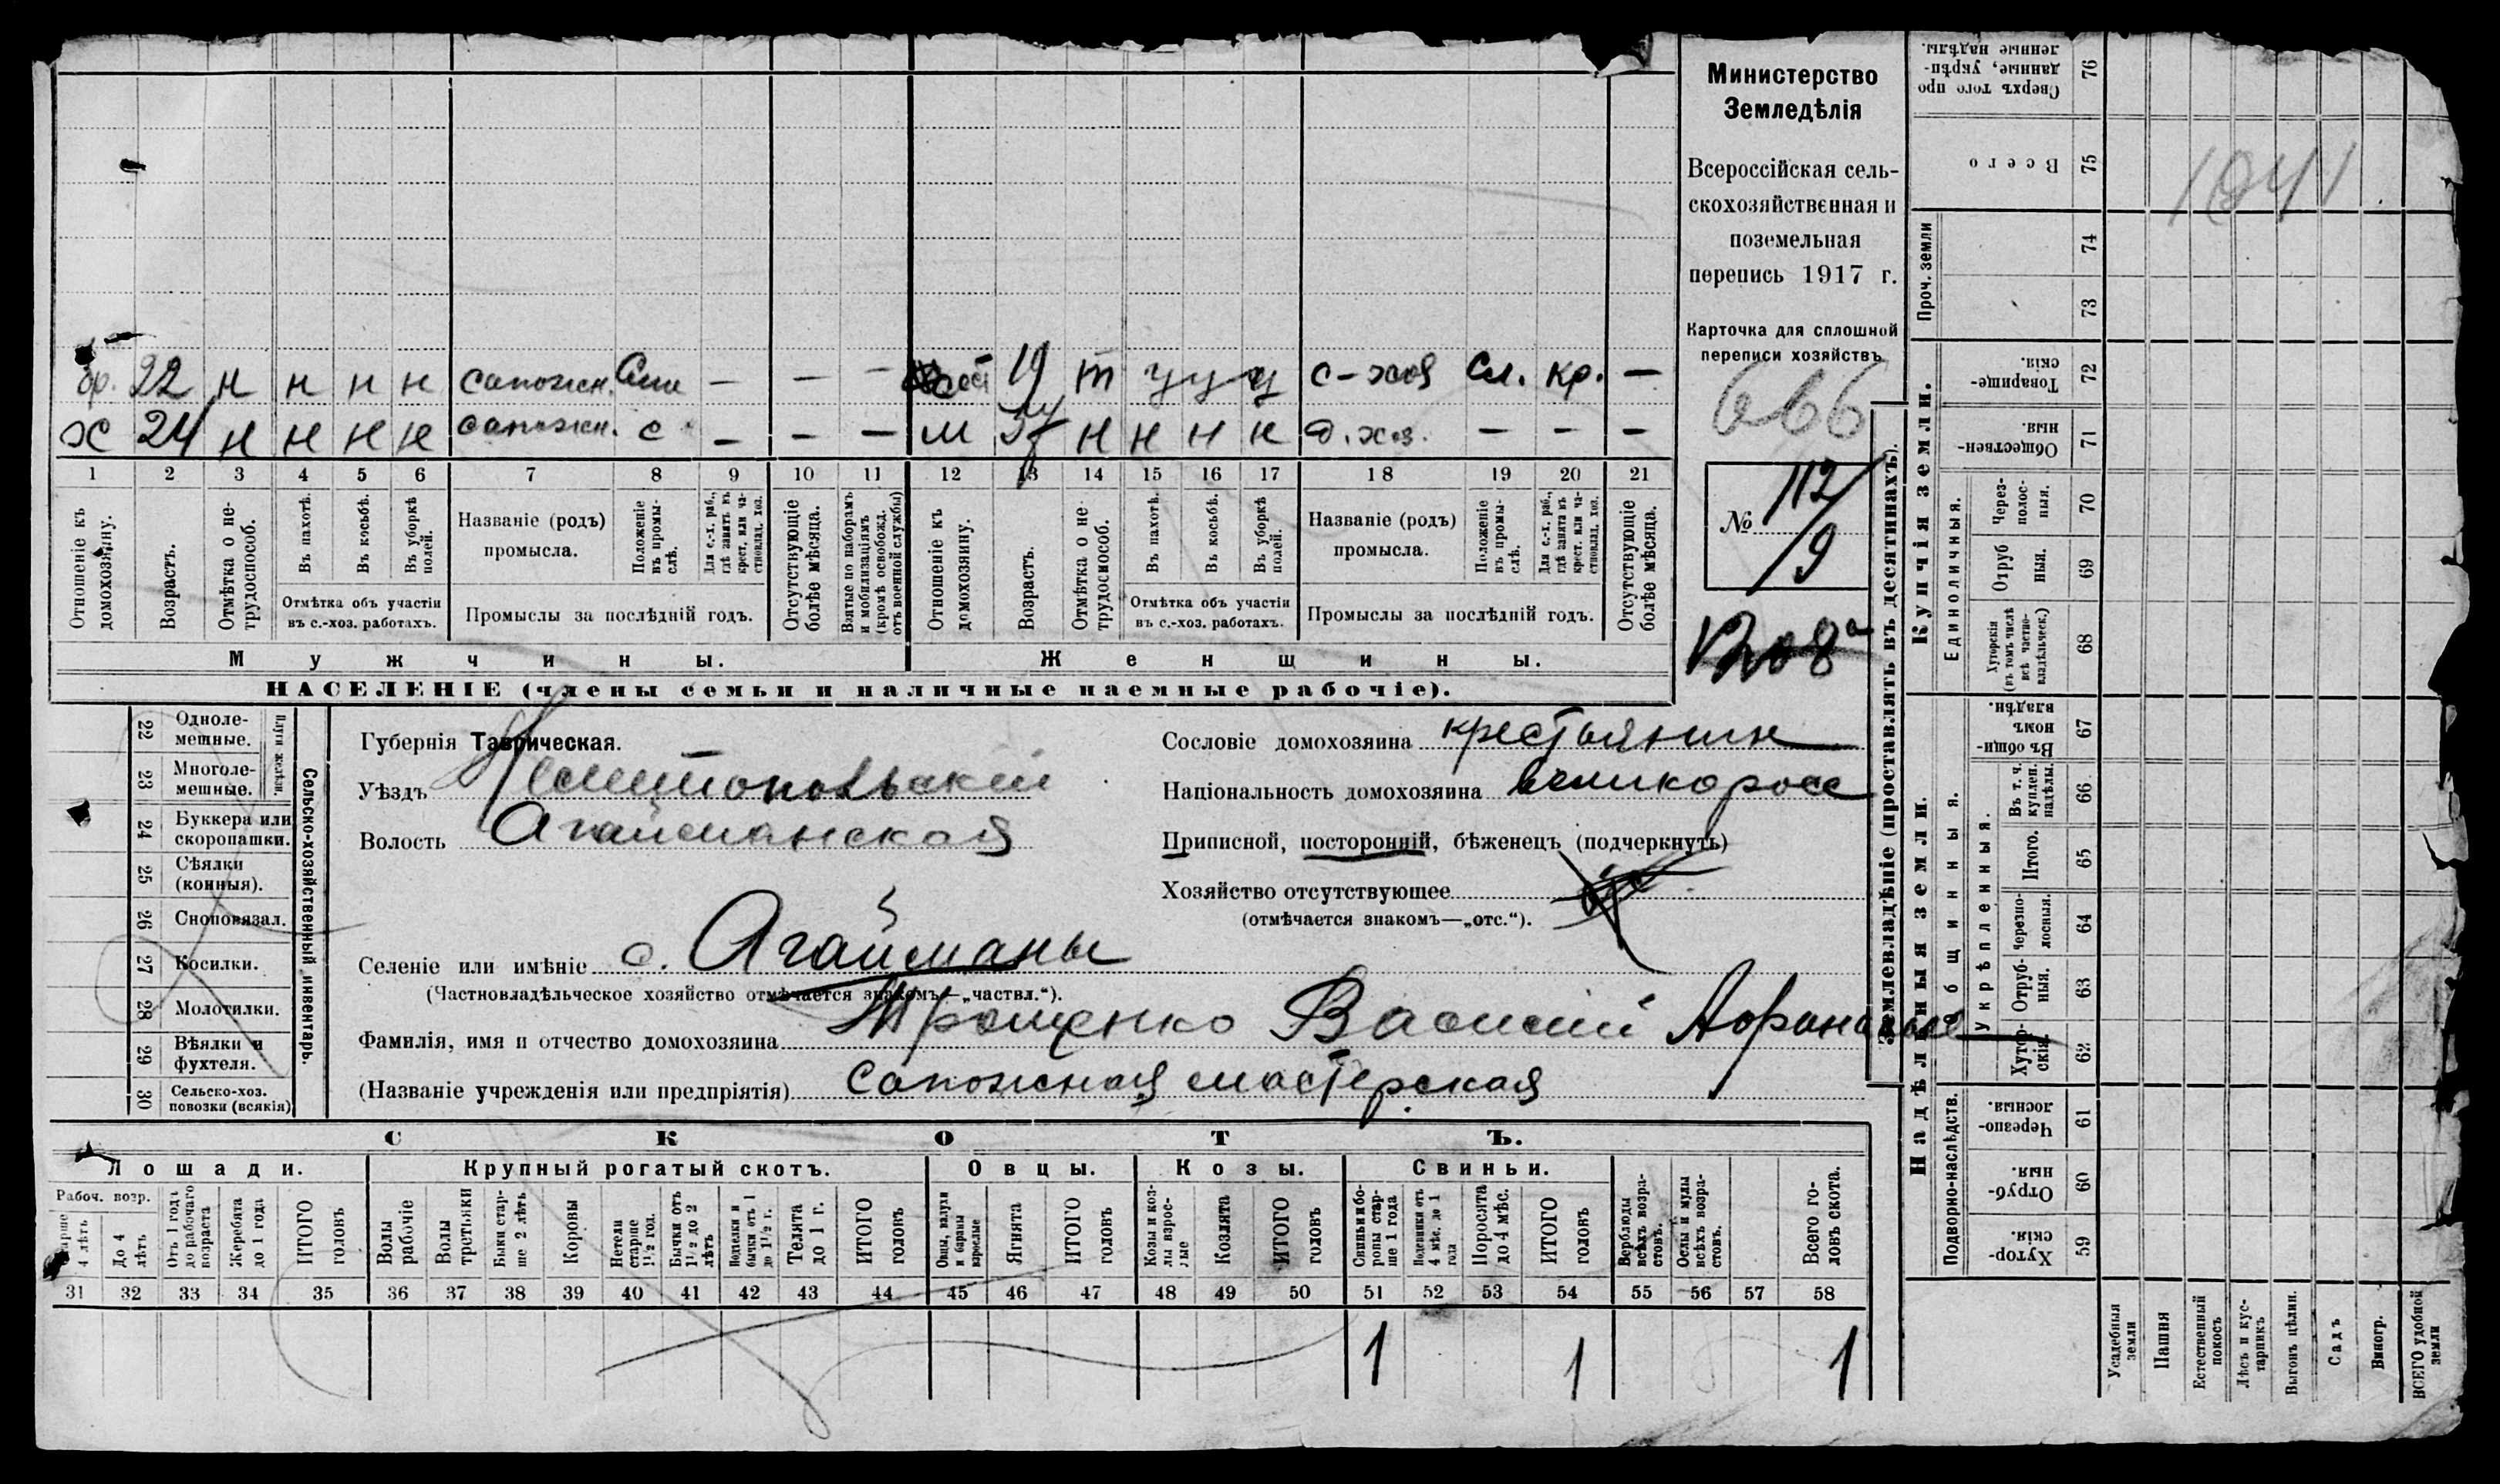 Министерство
Земледѣлія
Всероссійская сель-
скохозяйственная и
поземельная
перепись 1917 г.
Карточка для сплошной
переписи хозяйствъ
666
№ 112/9
1208а
бр. 22 н н н н сапожн. — — — 19 т у у у с-хоз сл. кр. —
х 24 н н н н сапожн. с — — — м н н н н д.хоз. — — —
1 2 3 4 5 6 7 8 9 10 11 12 13 14 15 16 17 18 19 20 21
Отношеніе къ домохозяину.
Возрастъ.
Отмѣтка о не-трудоспособ.
Въ пахотѣ.
Въ косьбѣ.
Въ уборкѣ полей.
Отмѣтка объ участіи въ с.-хоз. работахъ.
Названіе (родъ) промысла.
Положеніе въ промы-слѣ.
Для с.-х. раб., гдѣ занятъ въ крест. или ча-стновлад. хоз.
Промыслы за послѣдній годъ.
Отсутствующіе болѣе мѣсяца.
Взятые по наборамъ и мобилизаціямъ (кромѣ освобожд. отъ военной службы)
Отношеніе къ домохозяину.
Возрастъ.
Отмѣтка о не-трудоспособ.
Въ пахотѣ.
Въ косьбѣ.
Въ уборкѣ полей.
Отмѣтка объ участіи въ с.-хоз. работахъ.
Названіе (родъ) промысла.
Положеніе въ промы-слѣ.
Для с.-х. раб., гдѣ занята въ крест. или ча-стновлад. хоз.
Промыслы за послѣдній годъ.
Отсутствующіе болѣе мѣсяца.
Мужчины.
Женщины.
НАСЕЛЕНІЕ (члены семьи и наличные наемные рабочіе).
Сельско-хозяйственный инвентарь.
Плуги желѣзн.
22 Одноле-мешные.
23 Многоле-мешные.
24 Буккера или скоропашки.
25 Сѣялки (конныя).
26 Сноповязал.
27 Косилки.
28 Молотилки.
29 Вѣялки и фухтеля.
30 Сельско-хоз. повозки (всякія)
Губернія Таврическая.
Уѣздъ Мелитопольскій
Волость Агайманская
Сословіе домохозяина крестьянин
Національность домохозяина великоросс
Приписной, посторонній, бѣженецъ (подчеркнуть)
Хозяйство отсутствующее
(отмѣчается знакомъ—„отс.“).
Селеніе или имѣніе с. Агайманы
(Частновладѣльческое хозяйство отмѣчается знакомъ—„частвл.“).
Фамилія, имя и отчество домохозяина Трощенко Василий
(Названіе учрежденія или предпріятія) Сапожная мастерская
СКОТЪ.
Лошади.
Крупный рогатый скотъ.
Овцы.
Козы.
Свиньи.
Рабоч. возр.
Старше 4 лѣтъ
До 4 лѣтъ
Отъ 1 годъ до рабочаго возраста
Жеребята до 1 года
ИТОГО головъ
Волы рабочіе
Волы третьяки
Быки стар-ше 2 лѣтъ
Коровы
Нетели старше 1½ год.
Бычки отъ 1½ до 2 лѣтъ
Телушки и бычки отъ 1 до 1½ г.
Телята до 1 г.
ИТОГО головъ
Овцы, валухи и бараны взрослые
Ягнята
ИТОГО головъ
Козы и коз-лы взрос-лые
Козлята
ИТОГО головъ
Свиньи и бо-ровы стар-ше 1 года
Подсвинки отъ 4 мѣс. до 1 года
Поросята до 4 мѣс.
ИТОГО головъ
Верблюды всѣхъ возра-стовъ.
Ослы и мулы всѣхъ возра-стовъ.
Всего го-ловъ скота.
31 32 33 34 35 36 37 38 39 40 41 42 43 44 45 46 47 48 49 50 51 52 53 54 55 56 57 58
1 1 1
Землевладѣніе (проставлять въ десятинахъ).
Надѣльныя земли.
Купчія земли.
Проч. земли
Подворно-наслѣдств.
Общинныя.
Укрѣпленныя.
Единоличныя.
Сверхъ того про данные, укрѣп-ленные надѣлы. 76
Всего 75
74
73
Товарище-скія. 72
Обществен-ныя. 71
Через-полос-ныя. 70
Отруб ныя. 69
Хуторскія (въ томъ числѣ всѣ частно-владѣльческ.) 68
Въ общин-номъ владѣн. 67
Въ т. ч. куплен. надѣлы. 66
Итого. 65
Черезпо-лосныя. 64
Отруб-ныя. 63
Хутор-скія. 62
Черезпо-лосныя. 61
Отруб-ныя. 60
Хутор-скія. 59
Усадебныя земли
Пашня
Естественный покосъ
Лѣсъ и кус-тарникъ
Выгонъ цѣлин.
Садъ
Виногр.
ВСЕГО удобной земли
1041